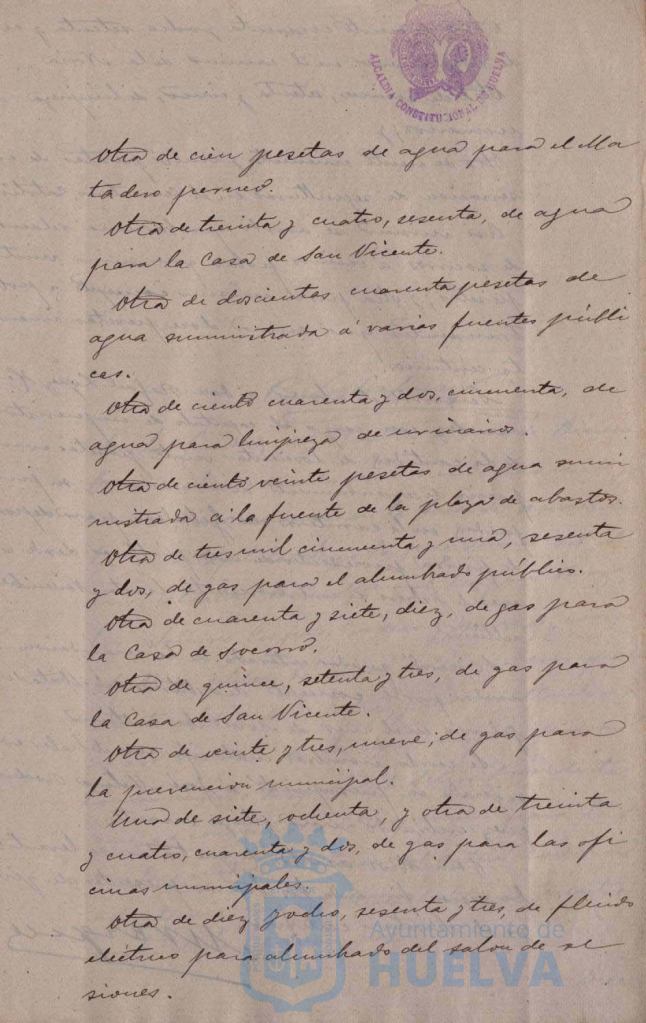 ALCALDIA CONSTITUCIONAL DE HUELVA
Otra de cien pesetas de agua para el Ma
tadero
Otra de treinta y cuatro, sesenta, de agua
para la Casa de San Vicente.
Otra de doscientas cuarenta pesetas de
agua suministrada á varias fuentes públi
cas.
Otra de ciento cuarenta y dos, cincuenta, de
agua para limpieza de urinarios.
Otra de ciento veinte pesetas de agua sumi
nistrada á la fuente de la plaza de abastos.
Otra de tres mil cincuenta y una, sesenta
y dos, de gas para el alumbrado público.
Otra de cuarenta y siete, diez, de gas para
la Casa de Socorro.
Otra de quince, setenta y tres, de gas para
la Casa de San Vicente.
Otra de veinte y tres, nueve, de gas para
la prevencion municipal.
Una de siete, ochenta, y otra de treinta
y cuatro, cuarenta y dos, de gas para las ofi
cinas municipales.
Otra de diez y ocho, sesenta y tres, de fluido
eléctrico para alumbrado del salon de se
siones.
Ayuntamiento de
HUELVA